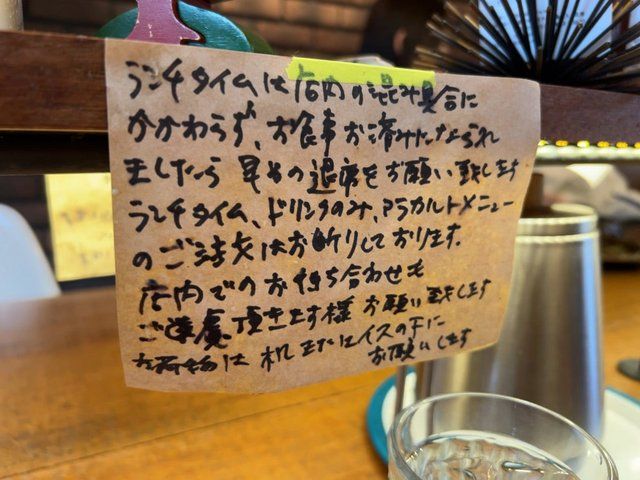 ランチタイムは店内の混み具合に
かかわらず、お食事お済みになられ
ましたら早めの退席をお願い致します
ランチタイム、ドリンクのみ、アラカルトメニュー
のご注文はお断りしております.
店内でのお待ち合わせも
ご遠慮頂きます様お願い致します
お荷物は机またはイスの下に
お願いします